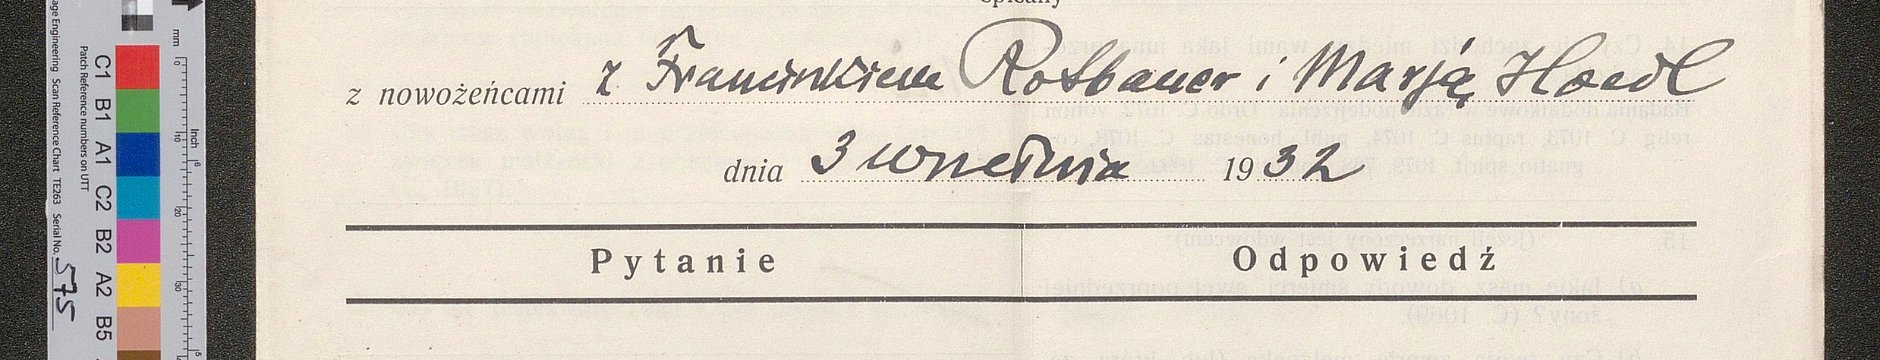 spisany
z nowożeńcami z Franciszkiem Rotbauer i Marją Hoedl
dnia 3 września 1932
Pytanie Odpowiedź
mm
Inch
C1 B1 A1 C2 B2 A2 B5
Patch Reference numbers on UTT
age Engineering Scan Reference Chart TE263 Serial No. 575